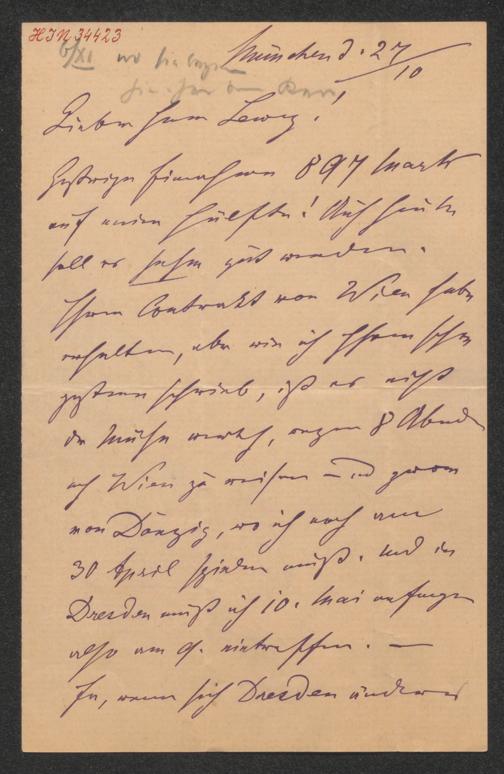 HIN 34423
6/XI wo
München d. 27/10
Lieber Herr Lewy!
Gestrige Einnahme 897 Mark
auf meine Hälfte! Auch heute
soll es sehr gut werden.
Ihren Contrakt von Wien habe
erhalten, aber wie ich Ihnen schon
gestern schrieb, ist es nicht
der Mühe werth, wegen 8 Abende
nach Wien zu reisen – und zwar
von Danzig, wo ich noch am
30 April spielen muß. Und in
Dresden muß ich 10. Mai anfangen
also am 9. eintreffen. —
Ja, wenn sich Dresden